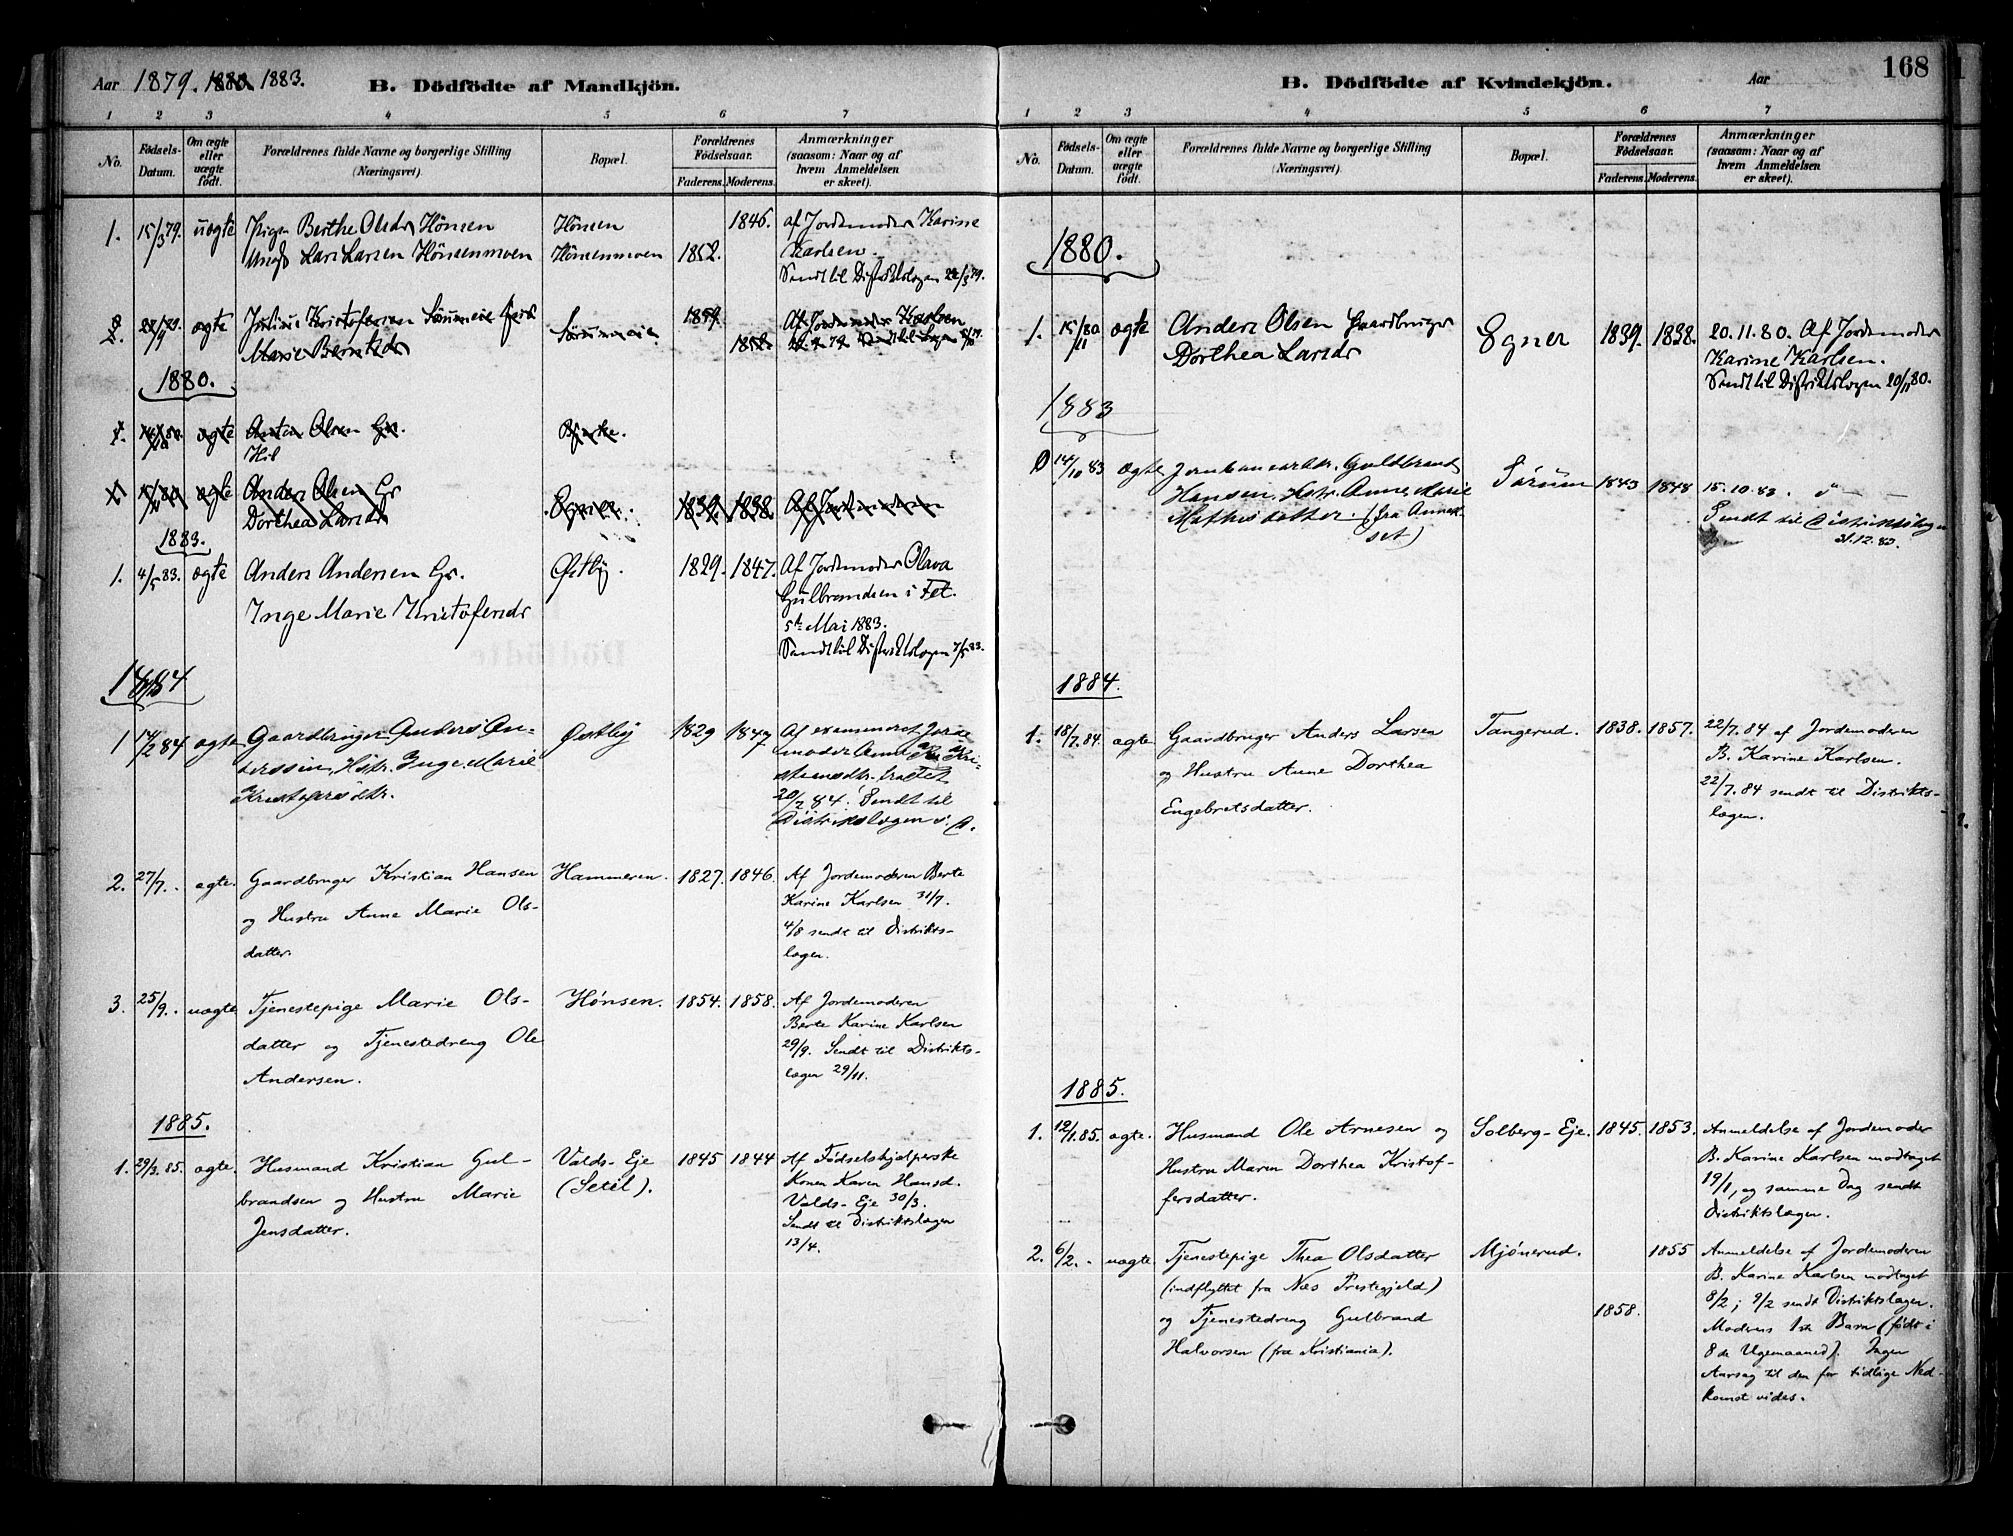 Aar 1879. 1880. 1883.
B. Dödfödte af Mandkjön.
1 2 3 4 5 6 7
No.
Födsels-
Datum.
Om ægte
eller
uægte
födt.
Forældrenes fulde Navne og borgerlige Stilling
(Næringsvei)
Bopæl.
Forældrenes
Födselsaar.
Faderens. Moderens.
Anmærkninger
(saasom: Naar og af
hvem Anmeldelsen
er skeet).
1. 15/3 79. uægte Pige Berthe Olsdr Hönsen Hönsen 1846. af Jordemoder Karine
Ungk Lars Larsen Hönsenmoen Hönsenmoen 1852. Karlsen.
Sendt til Distriktslægen 22/3 79.
2. ægte Julius Kristofersen
Marie Berntsdr
1859.
1852.
Af Jordemoder Karlsen
1880.
1. ægte Anton Olsen Gr. Bjerke.
Hil
1. 15/11 80 ægte Anders Olsen Gr Egner. 1839. 1838. Af Jordemoderen
Dorthea Larsdr
1883.
1. 4/5 83. ægte Anders Andersen Gr. Østby. 1829. 1847. Af Jordemoder Olava
Gulbrandsen i Fet.
Inge Marie Kristofersdr
5te Mai 1883.
Sendt til Distriktslægen 7/5 83.
1884
1 14/2 84 ægte Gaardbruger Anders An-
dersen, Hstr. Inge Marie
Kristofersdtr.
Østby 1829 1847
Af examineret Jorde
moder
20/2 84. Sendt til
Distriktslægen s. D.
2. 27/7. ægte. Gaardbruger Kristian Hansen
og Hustru Anne Marie Ols-
datter.
Hammeren. 1827. 1846.
Af Jordemoderen Berte
Karine Karlsen 31/7.
4/8 sendt til Distrikts-
lægen.
3. 25/9. uægte Tjenestepige Marie Ols-
datter og Tjenestedreng Ole
Andersen.
Hønsen. 1854. 1858.
Af Jordemoderen
Berte Karine Karlsen
29/9. Sendt til Distrikts-
lægen 29/11.
1885.
1. 29/3. 85. ægte. Husmand Kristian Gul-
brandsen og Hustru Marie
Jensdatter.
Valds-Eje
(Setil).
1845 1844
Af Fødselshjælperske
Konen Karen Hansd.
Valds-Eje 30/3.
Sendt til Distriktslægen
13/4.
B. Dödfödte af Kvindekjön.
Aar
168
1 2 3 4 5 6 7
No.
Födsels-
Datum.
Om ægte
eller
uægte
födt.
Forældrenes fulde Navne og borgerlige Stilling
(Næringsvei)
Bopæl.
Forældrenes
Födselsaar.
Faderens. Moderens.
Anmærkninger
(saasom: Naar og af
hvem Anmeldelsen
er skeet).
1880.
1. 15/11 80 ægte Anders Olsen Gaardbruger
Dorthea Larsdr
Egner 1839. 1838.
20.11.80. Af Jordemoder
Karine Karlsen.
Sendt til Distriktslægen 20/11 80.
1883
14/10 83 ægte Jernbanearbdr. Guldbrand
Hansen, Hstr. Anne Marie
Mathisdatter. (fra Annek-
set)
Sörum 1843 1848
15.10.83.
Sendt til Distriktslægen
31.12.83.
1884.
1. 18/7. 84. ægte Gaardbruger Anders Larsen
og Hustru Anne Dorthea
Engebretsdatter.
Tangerud. 1838. 1857.
22/7. 84 af Jordemoderen
B. Karine Karlsen.
22/7. 84 sendt til Distrikts-
lægen.
1885.
1. 12/1. 85. ægte. Husmand Ole Arnesen og
Hustru Maren Dorthea Kristof-
fersdatter.
Solberg-Eje. 1845. 1853.
Anmeldelse af Jordemoder
B. Karine Karlsen modtaget
19/1, og samme Dag sendt
Distriktslægen.
2. 6/2. - uægte. Tjenestepige Thea Olsdatter
(indflyttet fra Næs Prestegjeld)
og Tjenestedreng Gulbrand
Halvorsen (fra Kristiania).
Mjønerud. 1855
1858.
Anmeldelse af Jordemoderen
B. Karine Karlsen modtaget
8/2; 9/2 sendt Distriktslægen.
Moderens 1ste Barn (født i
8de Ugemaaned). Ingen
Aarsag til den for tidlige Ned-
komst vides.